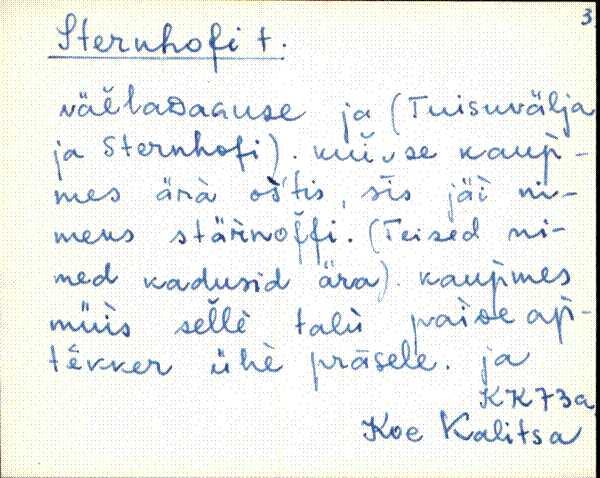 3
Sternhofi t.
ja (Tuisuvälja
ja Sternhofi). kui se kaup-
mes ärà os'tis, sīs jäi ni-
meks stärnoffi. (Teised ni-
med kadusid ära). kaupmes
müis sellè talù paide ap-
tekker ühè präsele. ja
KK73a
Koe Kalitsa